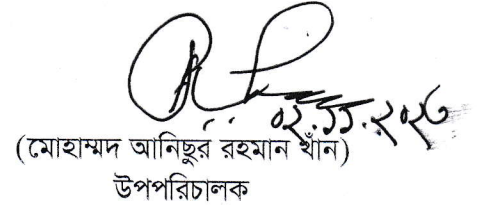 ০২.১১.২০২৩
(মোহাম্মদ আনিছুর রহমান খাঁন)
উপপরিচালক